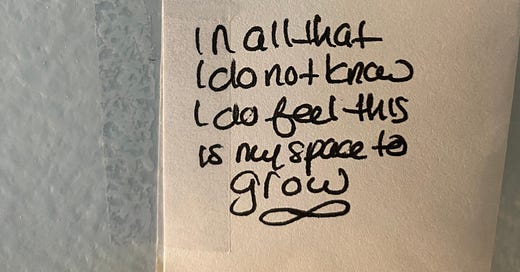 In all that
I do not know
I do feel this
is my space to
grow